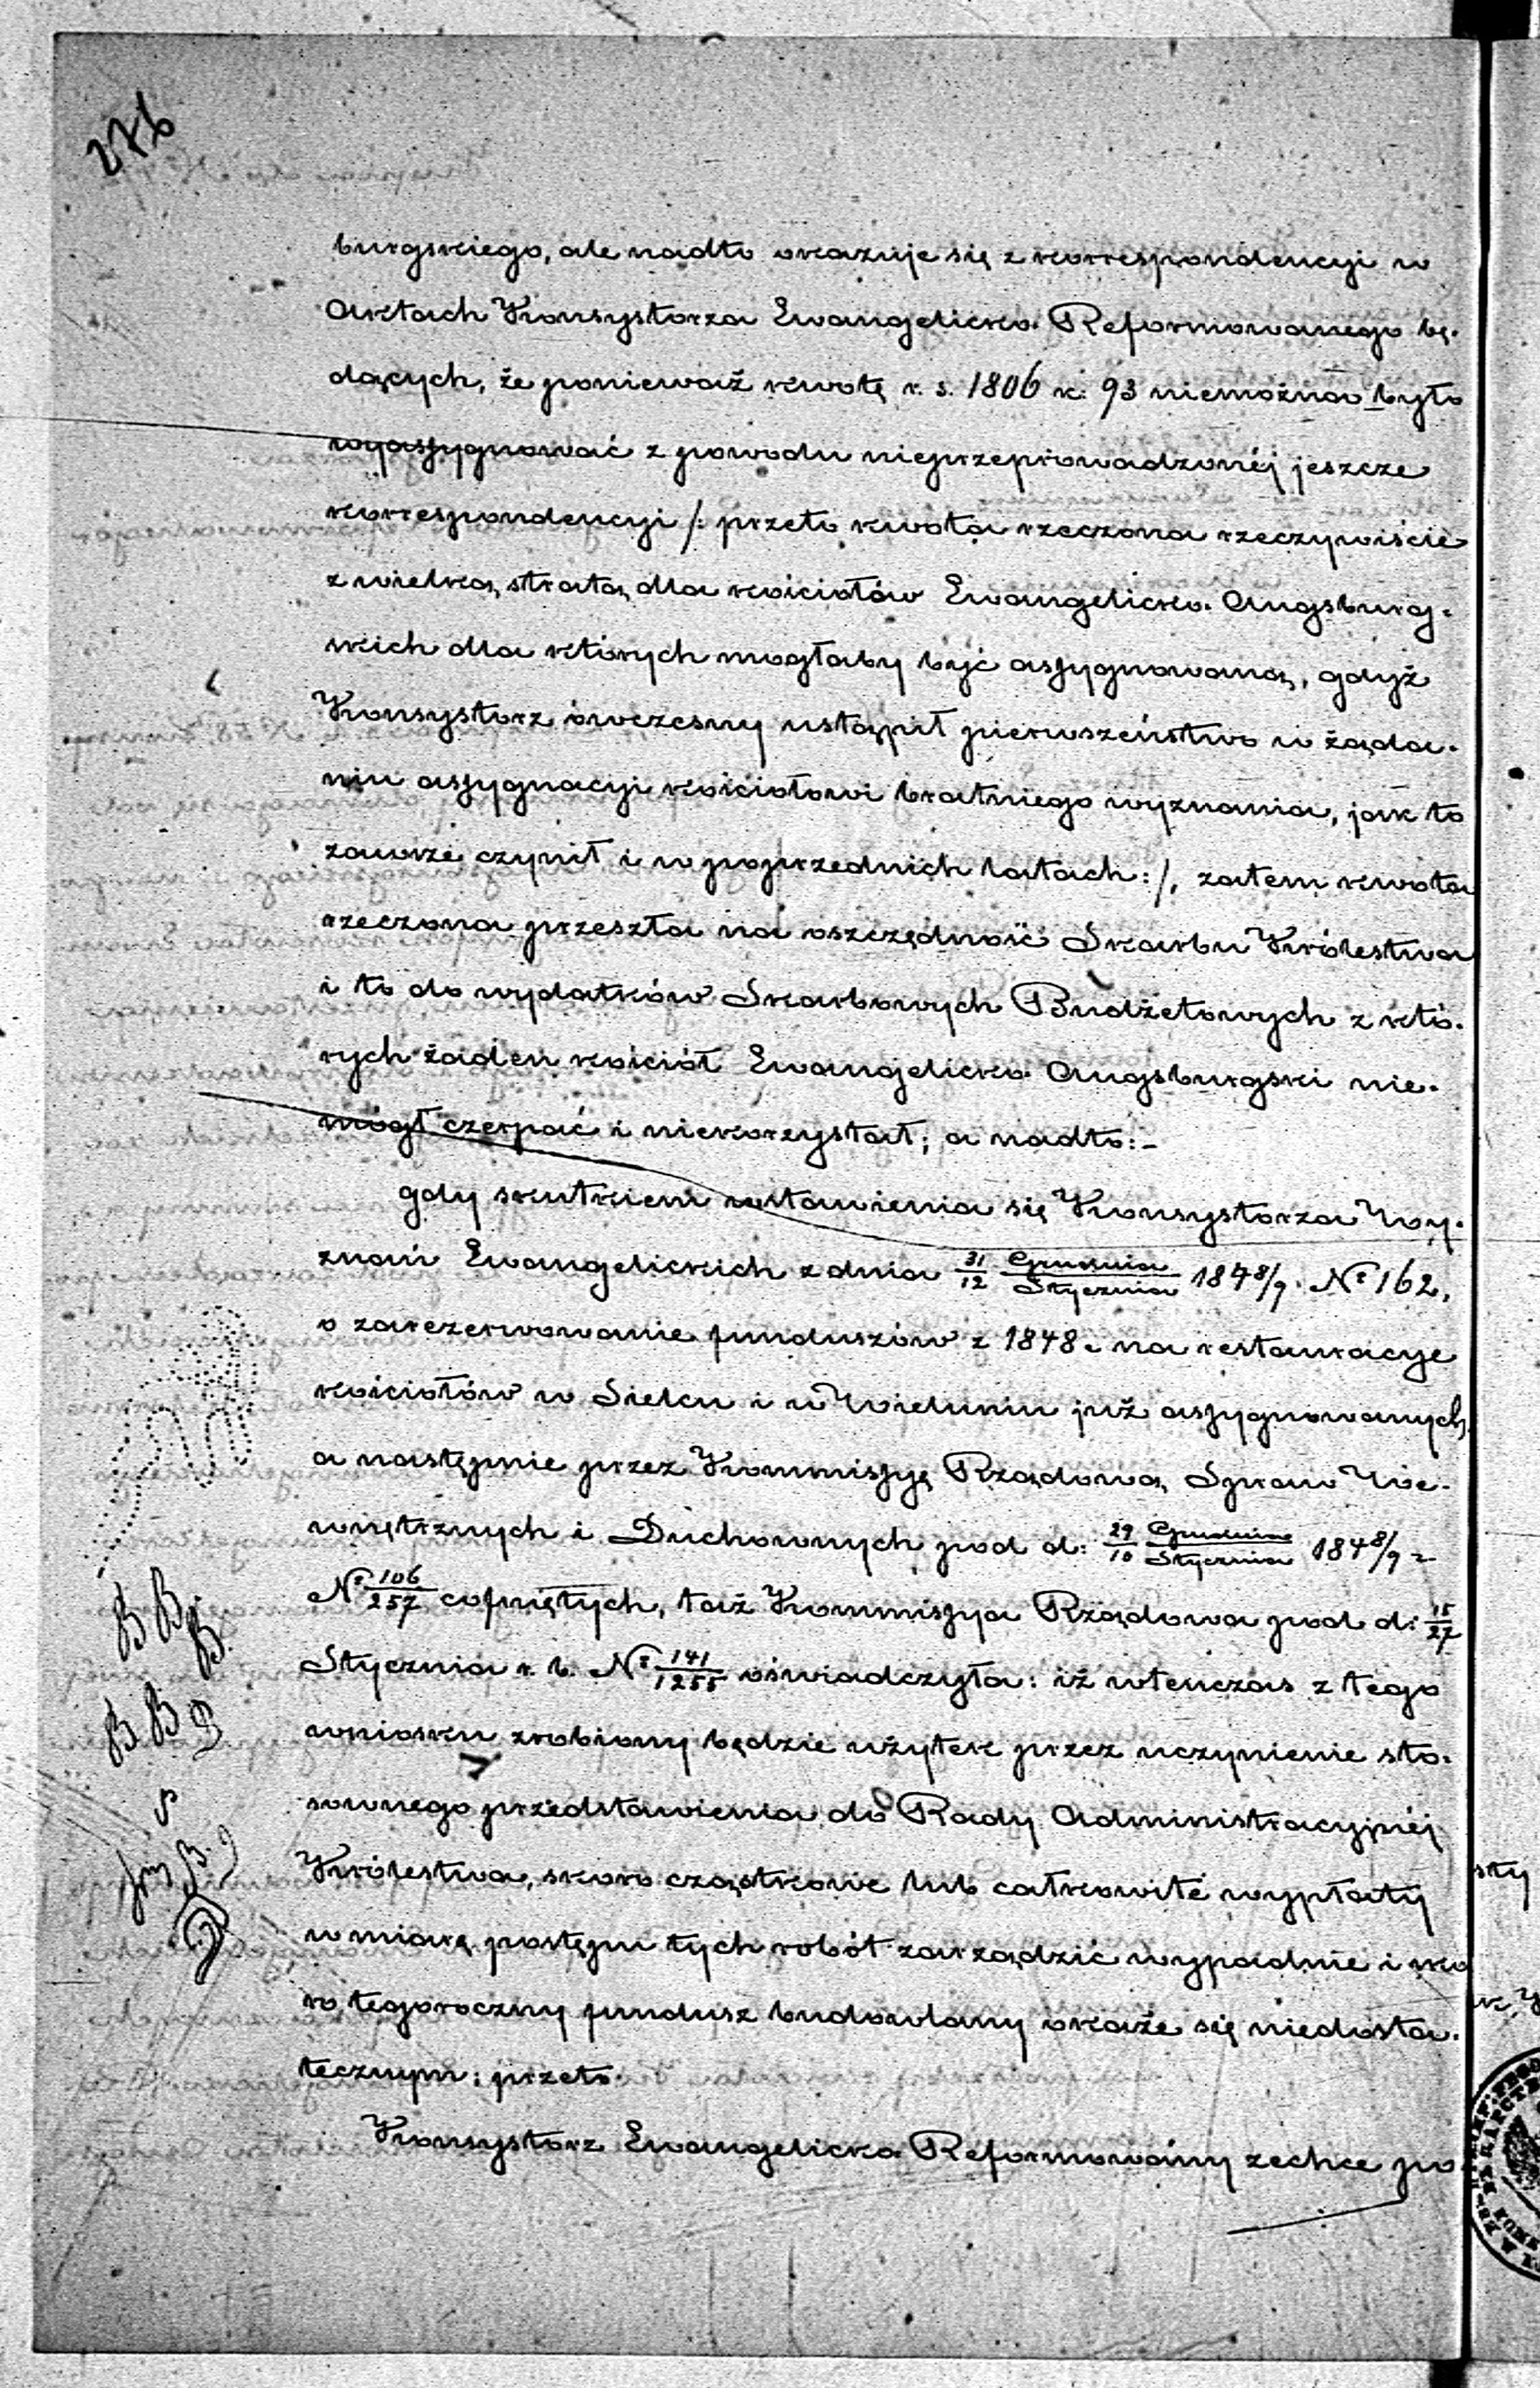 276
burgskiego, ale nadto okazuje się z korrespondencyi w
Aktach Konsystorza Ewangelicko-Reformowanego bę-
dących, że ponieważ kwotę r. s. 1806 k: 93 niemożna było
wyassygnować z powodu nieprzeprowadzonéj jeszcze
korrespondencyi /: przeto kwota rzeczona rzeczywiście
z wielką stratą dla kościołów Ewangelicko-Augsburg-
skich dla których mogłaby być assygnowaną, gdyż
Konsystorz ówczesny ustąpił pierwszeństwo w żąda-
niu assygnacyi kościołowi bratniego wyznania, jak to
zawsze czynił i w poprzednich latach :/, zatem kwota
rzeczona przeszła na oszczędność Skarbu Królestwa
i to do wydatków Skarbowych Budżetowych z któ-
rych żaden kościół Ewangelicko-Augsburgski nie-
mógł czerpać i niekorzystał; a nadto:-
gdy skutkiem wstawienia się Konsystorza Wy-
znań Ewangelickich z dnia 31/12 Grudnia/Stycznia 1848/9 Nº 162,
o zarezerwowanie funduszów z 1848 r. na restauracye
kościołów w Sielcu i w Wieluniu już assygnowanych,
a następnie przez Kommissyę Rządową Spraw We-
wnętrznych i Duchownych pod d: 29/10 Grudnia/Stycznia 1848/9 r.
Nº 106/257 cofniętych, taż Kommissya Rządowa pod d: 15/27
Stycznia r. b. Nº 141/1255 oświadczyła: iż wtenczas z tego
wniosku zrobiony będzie użytek przez uczynienie sto-
sownego przedstawienia do Rady Administracyjnéj
Królestwa, skoro cząstkowe lub całkowite wypłaty
w miarę postępu tych robót zarządzić wypadnie i sko
ro tegoroczny fundusz budowlany okaże się niedosta-
tecznym; przeto.
Konsystorz Ewangelicko Reformowany zechce po